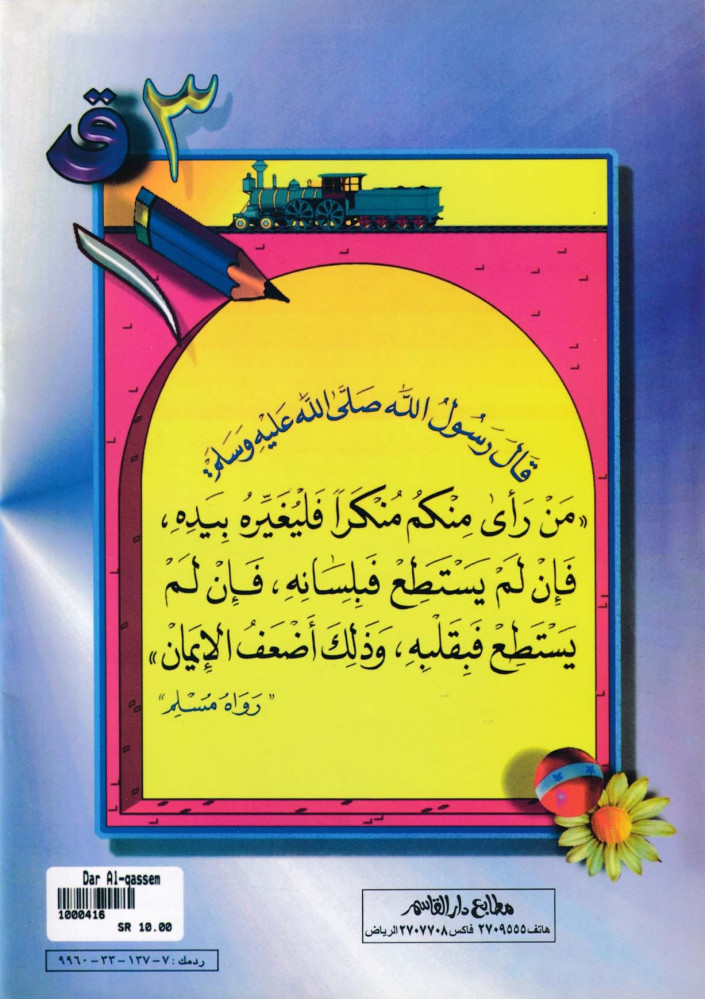 ٣
ق
١
قَالَ رَسُولُ اللَّهِ صَلَّى اللَّهُ عَلَيْهِ وَسَلَّمَ :
«مَنْ رَأَىٰ مِنْكُمْ مُنْكَرًا فَلْيُغَيِّرْهُ بِيَدِهِ،
فَإِنْ لَمْ يَسْتَطِعْ فَبِلِسَانِهِ، فَإِنْ لَمْ
يَسْتَطِعْ فَبِقَلْبِهِ، وَذَلِكَ أَضْعَفُ الإِيمَانِ»
"رَوَاهُ مُسْلِم"
Dar Al-qassem
1000416
SR 10.00
مطابع دار القاسم
هاتف ٢٧٠٩٥٥٥ فاكس ٢٧٠٧٧٠٨ الرياض
ردمك : ٧-١٣٧-٣٣-٩٩٦٠